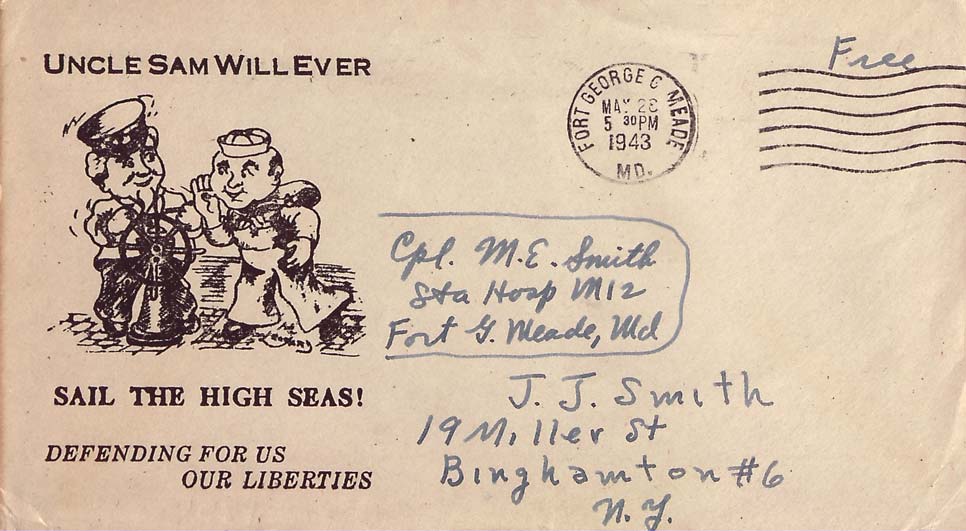 UNCLE SAM WILL EVER
Free
FORT GEORGE G MEADE
MAY 28
5 30 PM
1943
MD.
Cpl. M.E. Smith
Sta Hosp M12
Fort G. Meade, Md
SAIL THE HIGH SEAS!
J. J. Smith
19 Miller St
Binghamton #6
N.Y.
DEFENDING FOR US
OUR LIBERTIES